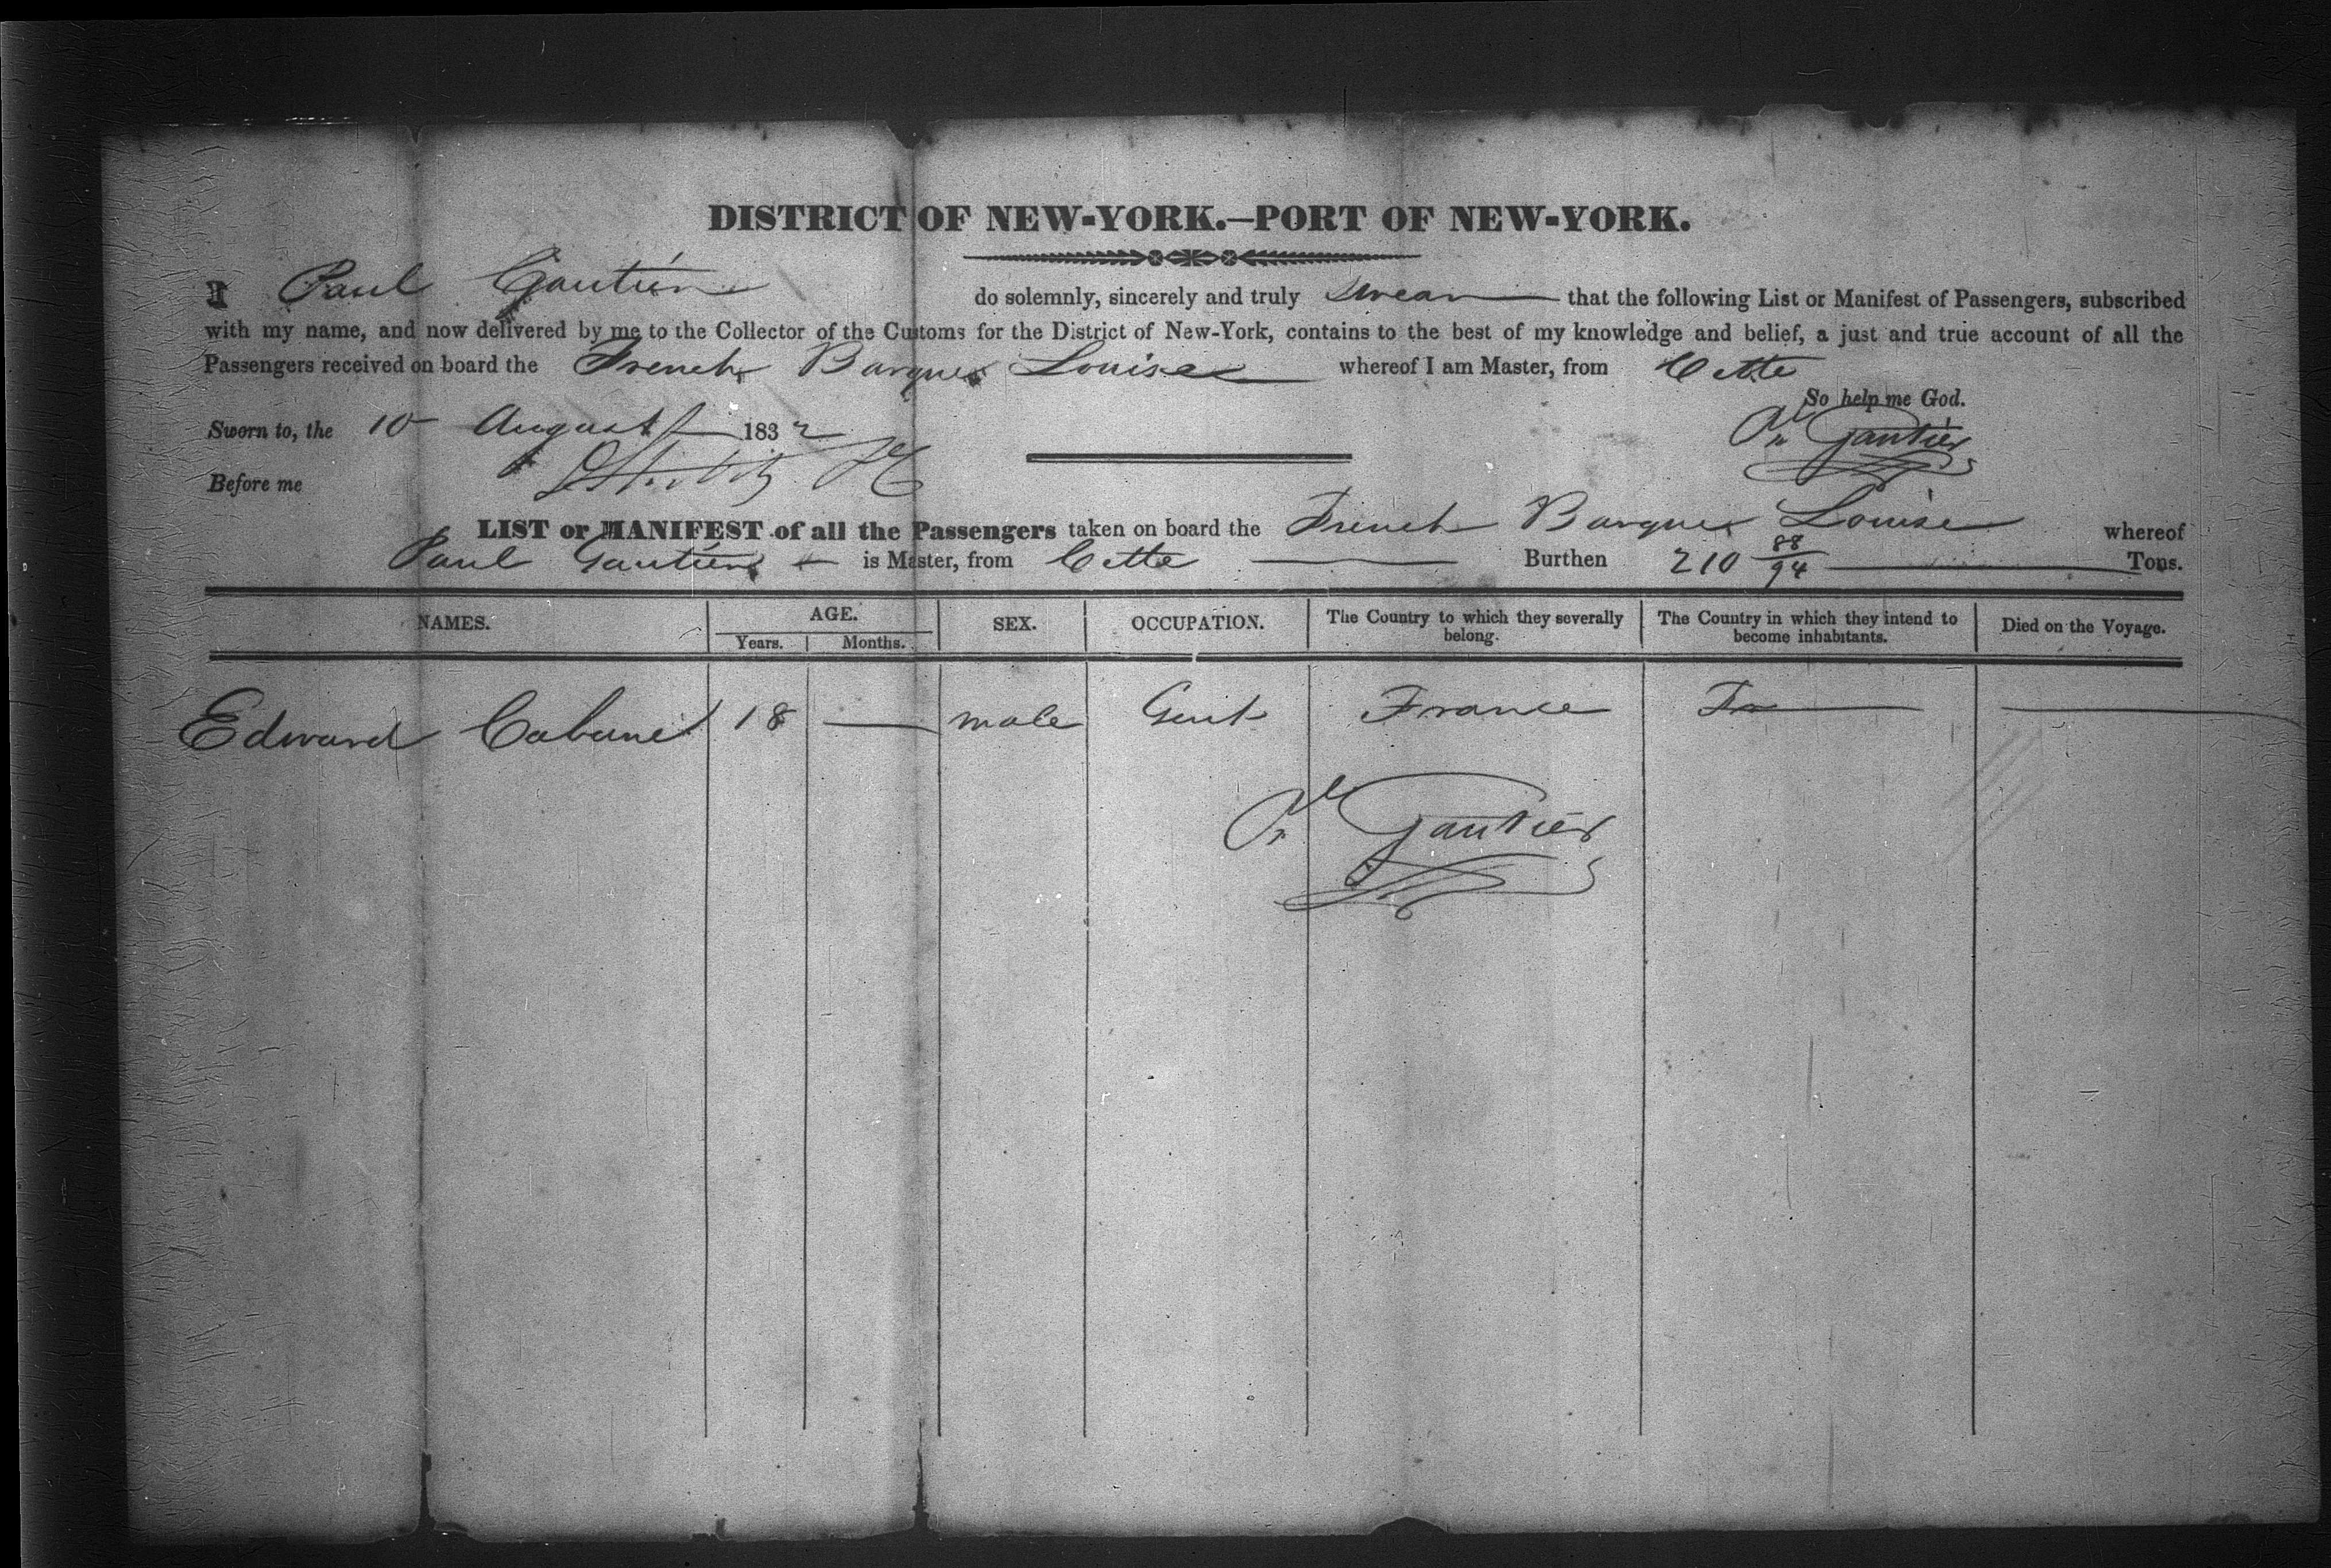 DISTRICT OF NEW-YORK.—PORT OF NEW-YORK.
I Paul Gautier do solemnly, sincerely and truly swear that the following List or Manifest of Passengers, subscribed
with my name, and now delivered by me to the Collector of the Customs for the District of New-York, contains to the best of my knowledge and belief, a just and true account of all the
Passengers received on board the French Barque Louise whereof I am Master, from Cette
So help me God.
Sworn to, the 10 August 1832
Pl Gautier
Before me
LIST or MANIFEST of all the Passengers taken on board the French Barque Louise whereof
Paul Gautier is Master, from Cette Burthen 210 88/94 Tons.
NAMES. AGE. SEX. OCCUPATION. The Country to which they severally belong. The Country in which they intend to become inhabitants. Died on the Voyage.
Years. Months.
Edward Cabanel 18 — male Gent France Fr
Pl Gautier